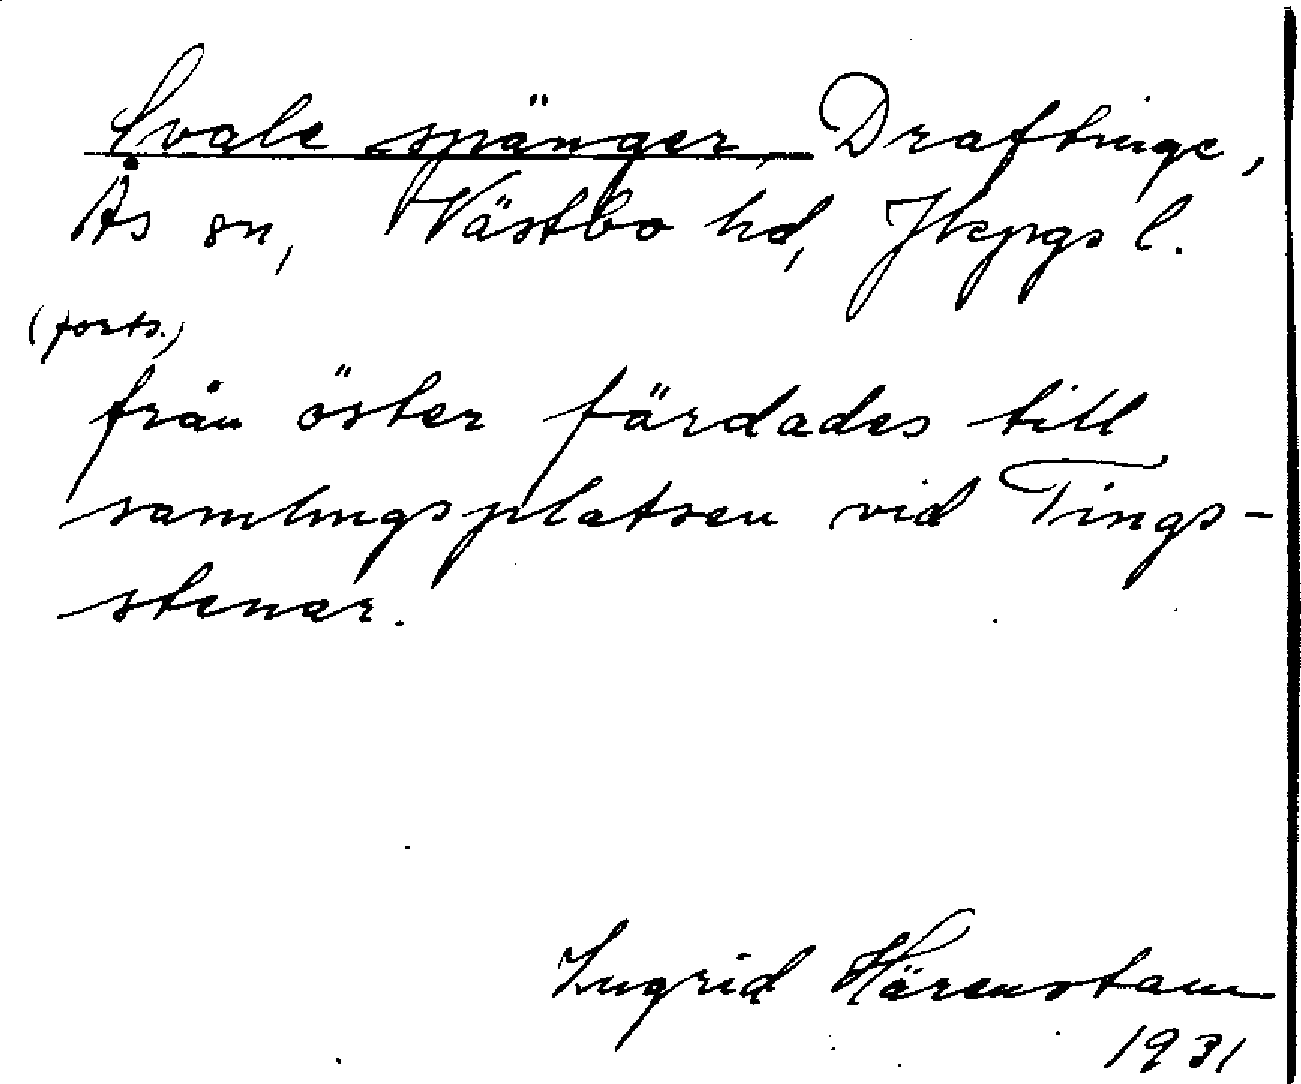 Svale spänger, Draftinge,
Ås sn, Västbo hd, Jkpgs l.
(forts.)
från öster färdades till
samlingsplatsen vid Tings-
stenar.
Ingrid Härenstam
1931